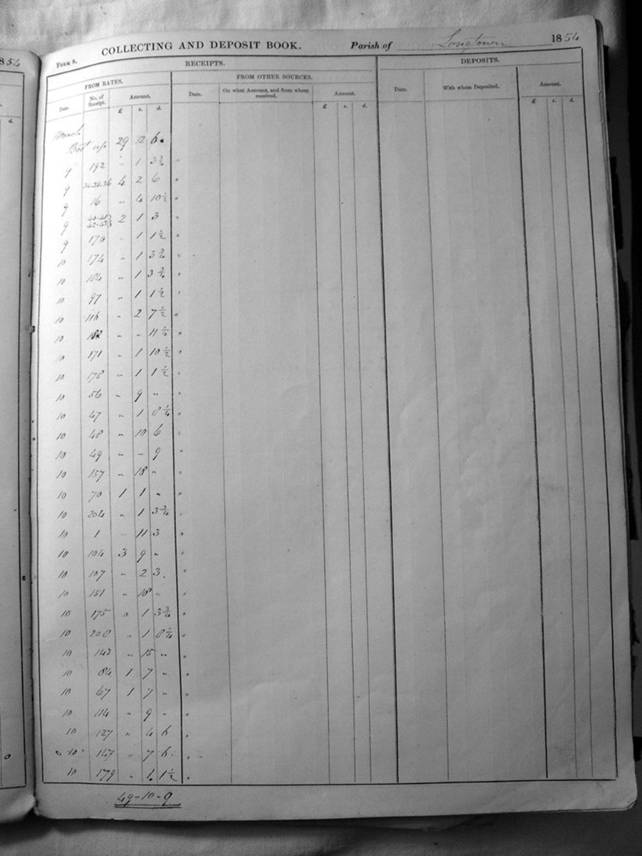 1854
FORM 8. COLLECTING AND DEPOSIT BOOK. Parish of Longtown 1854
RECEIPTS. DEPOSITS.
FROM RATES. FROM OTHER SOURCES.
Date. No. of Receipt. Amount. Date. On what Account, and from whom received. Amount. Date. With whom Deposited. Amount.
£ s. d. £ s. d. £ s. d.
March
29 12 6
9 192 " 1 3¾
9 4 2 6
9 16 " 4 10½
9 2 1 3
9 " 1 1½
10 174 " 1 3¾
10 104 " 1 3¾
10 97 " 1 1½
10 116 " 2 7½
10 " - 11¼
10 171 " 1 10½
10 178 " 1 1½
10 56 " 9 "
10 47 " 1 0¾
10 48 " 10 6
10 49 " - 9
10 157 " 18 "
10 70 1 1 "
10 204 " 1 3¾
10 1 " 11 3
10 194 3 9 "
10 107 " 2 3
10 151 " 18 "
10 175 " 1 3¾
10 200 " 1 0¾
10 142 " 15 "
10 84 1 7 "
10 67 1 7 "
10 114 " 9 "
10 127 " 4 6
10 147 " 7 6
10 179 " 4 1½
49-10-9